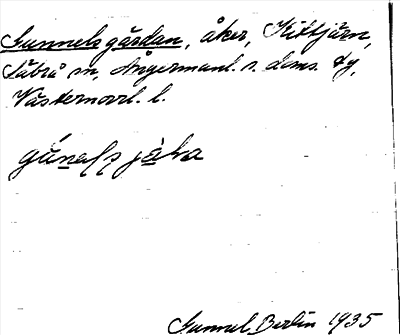 Gunnelsgärdan, åker, Kittjärn,
Säbrå sn, Ångermanl. s. doms. tg,
Västernorrl. l.
Gunnel Berlin 1935